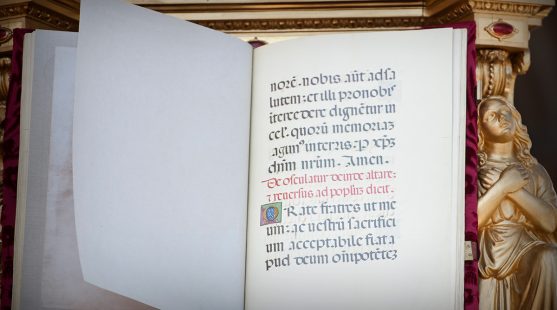 norē. nobis aūt ad sa
lutem: et illi pro nobis
itercedere dignētur in
cel. quorū memoriaz
agim⁹ in terris. P xp̄z
dn̄m nrūm. Amen.
De osculatur deinde altare:
⁊ reversus ad populū dicit.
ORate fratres ut me
um: ac vestrū sacrifici
um acceptabile fiat a
pud deum om̄ipotētez